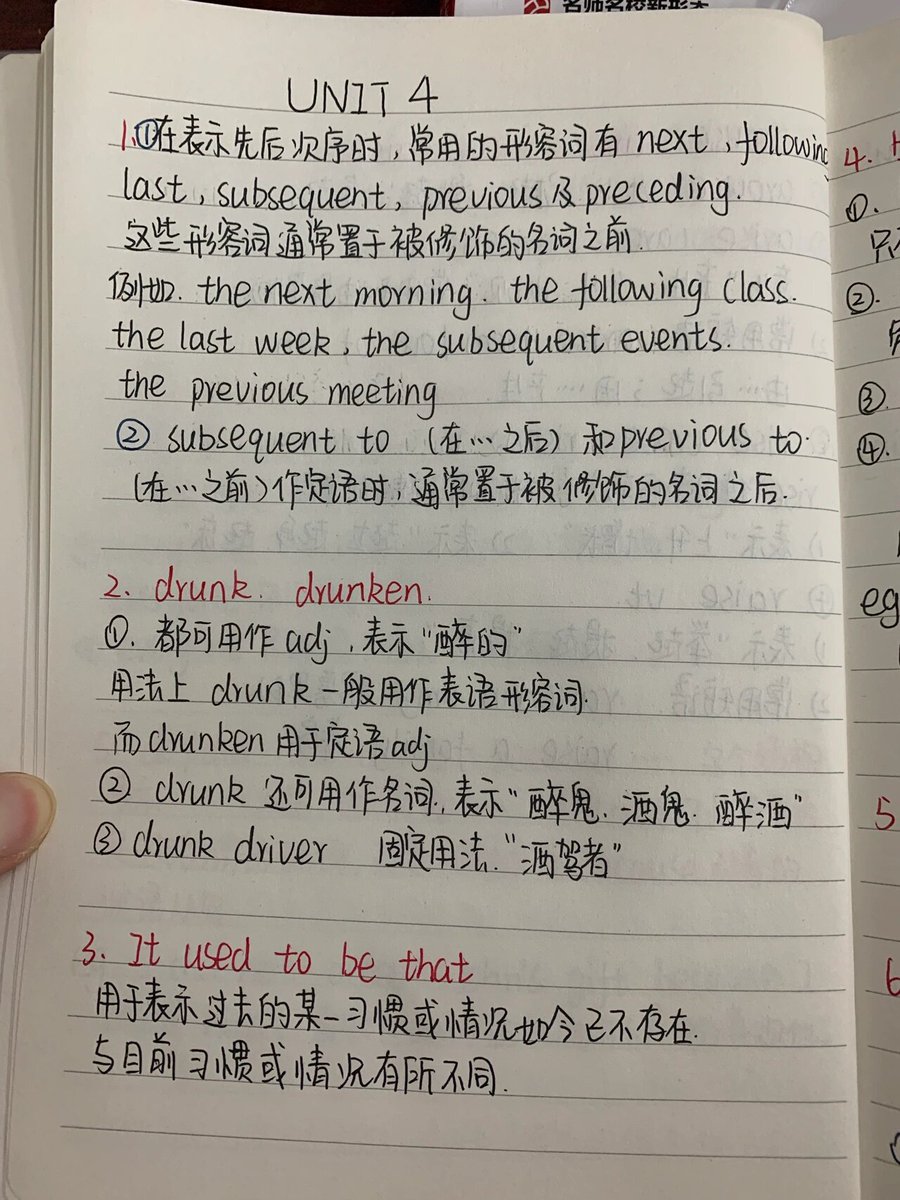 名师名校新形态
UNIT 4
1.①在表示先后次序时,常用的形容词有 next, following
last, subsequent, previous 及 preceding.
这些形容词通常置于被修饰的名词之前.
例如. the next morning. the following class.
the last week, the subsequent events.
the previous meeting
② subsequent to (在…之后) 和 previous to.
(在…之前)作定语时,通常置于被修饰的名词之后.
2. drunk. drunken.
①. 都可用作 adj,表示“醉的”
用法上 drunk 一般用作表语形容词.
而 drunken 用于定语 adj
② drunk 还可用作名词,表示“醉鬼. 酒鬼. 醉酒”
③ drunk driver 固定用法.“酒驾者”
3. It used to be that
用于表示过去的某一习惯或情况如今已不存在.
与目前习惯或情况有所不同.
4.
①.
②.
③.
④.
eg
5
6